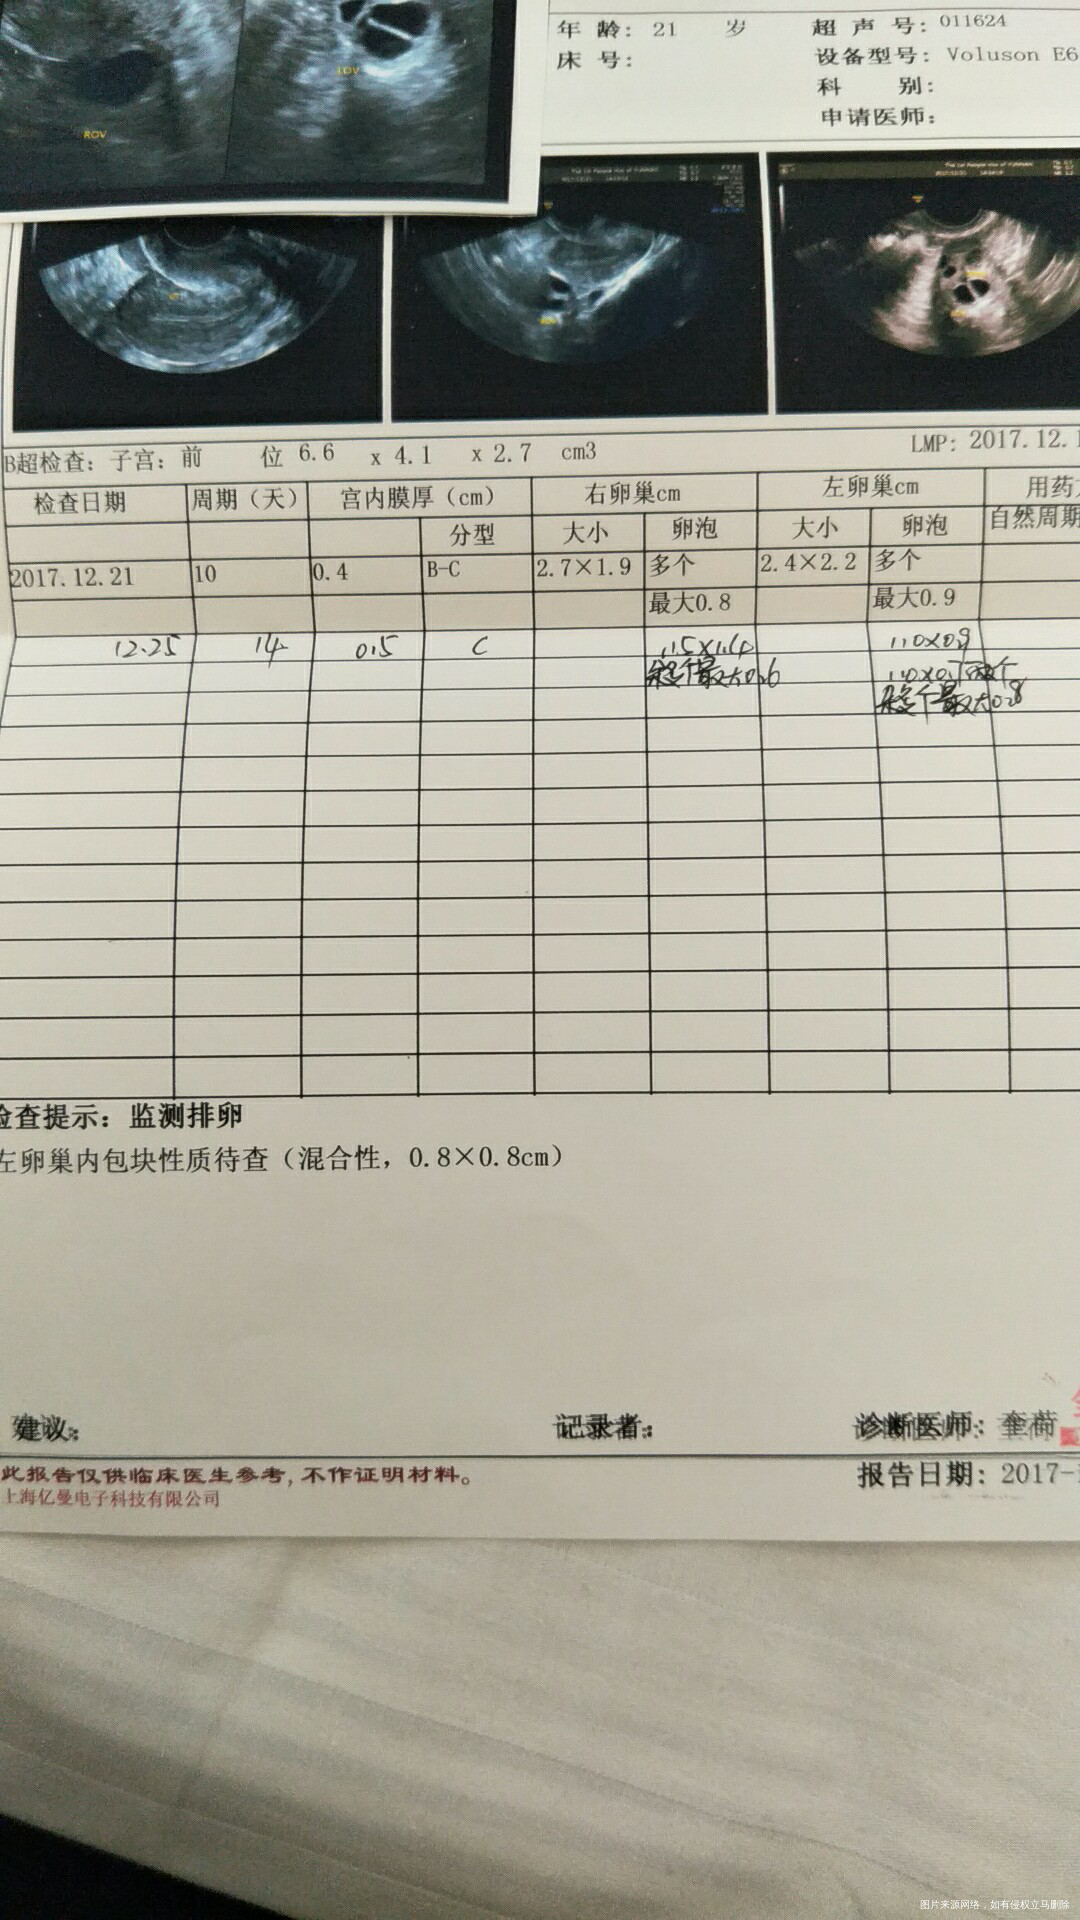 ROV
LOV
年 龄: 21 岁
超 声 号: 011624
床 号:
设备型号: Voluson E6
科 别:
申请医师:
B超检查: 子宫: 前 位 6.6 x 4.1 x 2.7 cm3
LMP: 2017.12.1
检查日期 周期(天) 宫内膜厚(cm) 右卵巢cm 左卵巢cm 用药
分型 大小 卵泡 大小 卵泡 自然周期
2017.12.21 10 0.4 B-C 2.7×1.9 多个 2.4×2.2 多个
最大0.8 最大0.9
12.25 14 0.5 C 1.5×1.4 1.0×0.9
余多个最大0.6 1.0×0.7两个
余多个最大0.8
检查提示: 监测排卵
左卵巢内包块性质待查(混合性, 0.8×0.8cm)
建议:
记录者:
诊断医师:
此报告仅供临床医生参考, 不作证明材料。
报告日期: 2017-
上海亿曼电子科技有限公司
图片来源网络，如有侵权立马删除